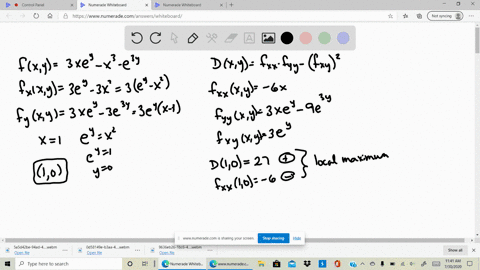 Control Panel
Numerade Whiteboard
Numerade Whiteboard
https://www.numerade.com/answers/whiteboard/
Not syncing
f(x,y) = 3xe^y - x^3 - e^{3y}
f_x(x,y) = 3e^y - 3x^2 = 3(e^y - x^2)
f_y(x,y) = 3xe^y - 3e^{3y} = 3e^y(x-1)
x=1 e^y = x^2
e^y = 1
y=0
(1,0)
D(x,y) = f_xx · f_yy - (f_xy)^2
f_xx(x,y) = -6x
f_yy(x,y) = 3xe^y - 9e^{3y}
f_xy(x,y) = 3e^y
D(1,0) = 27 +
f_xx(1,0) = -6 −
local maximum
www.numerade.com is sharing your screen.
Stop sharing
Hide
Open file
Open file
Open file
Show all
Type here to search
Numerade Whiteb...
11:41 AM